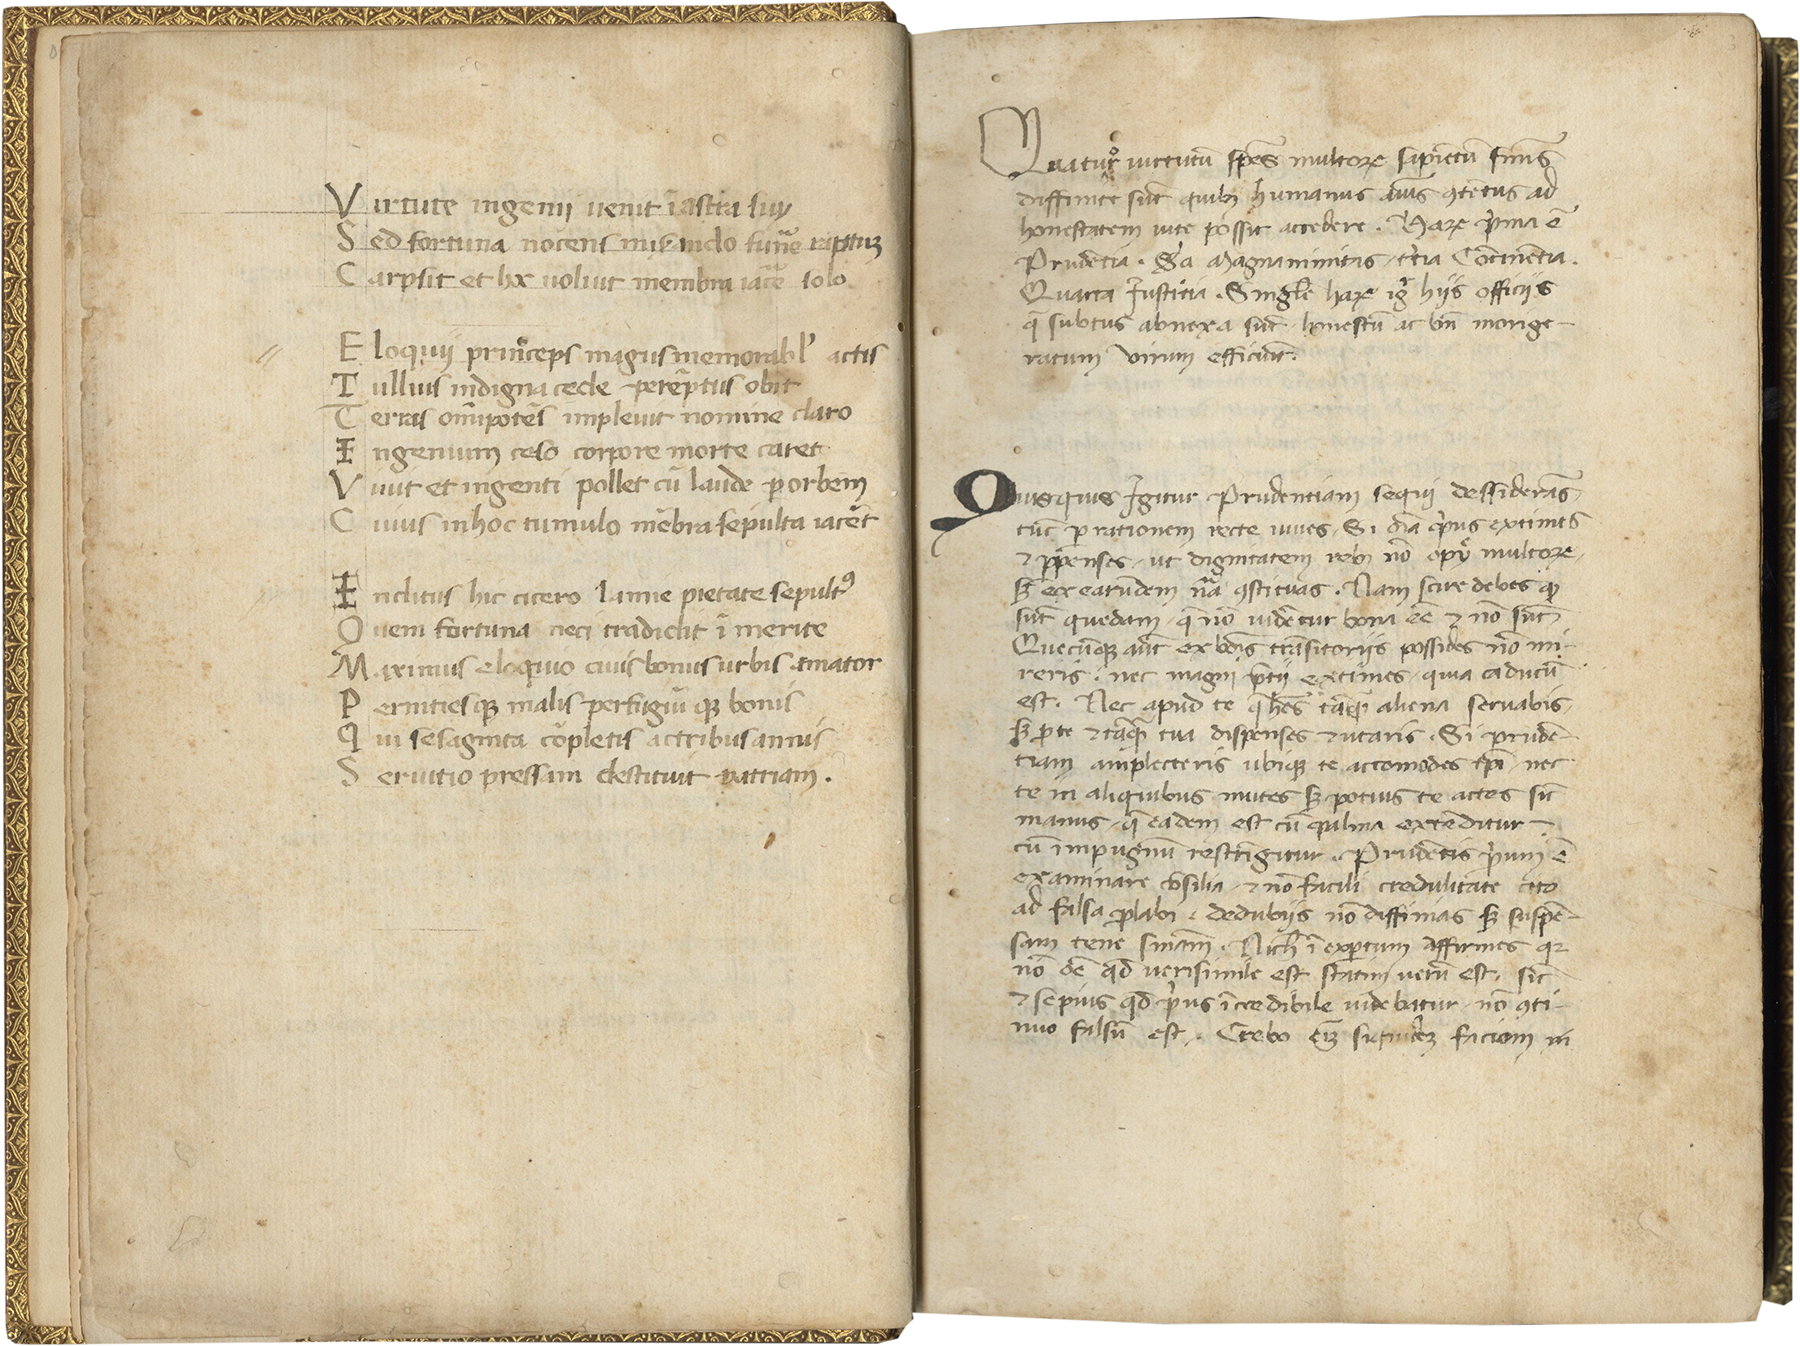 Virtute ingenii uenit ī astra suy
Sed fortuna nocens miserando funē raptū
Carpsit et hoc uoluit membra iacē solo
Eloquii princeps magnus memorabl' actis
Tullius indigna cede perēptus obit
Terras omīpotēs impleuit nomine claro
Ingenium ceso corpore morte caret
Viuit et ingenti pollet cū laude p orbem
Cuius in hoc tumulo mēbra sepulta iacēt
Inclitus hic cicero lamie pietate sepultꝰ
Quem fortuna neci tradidit īmerite
Maximus eloquio ciuis bonus urbis amator
Pernities qꝫ malis perfugiū qꝫ bonis
Qui sesaginta cōpletis actribus annis
Seruitio pressam destituit patriam.
Quatuoꝛ uirtutū spēs multoꝝ sapiētū sniīs
diffinite sūt quibꝫ humanus aīus ꝯtētus ad
honestatem uite possit accedere. Haꝝ prīma ē
Prudētia. Sa Magnanimitas, tr̄tia Cōtinētia.
Quarta Justitia. Singule haꝝ igr̄ hiis officiis
q̄ subtus abnexa sūt, honestū ac bn̄ morige-
ratum virum efficiūt.
Quisquis Igitur Prudentiam sequi dessiderās
tūc p rationem recte uiues, Si oīa prīus extimēs
⁊ ꝑpenses, ut dignitatem rebꝫ nō opī multoꝝ,
sꝫ ex earumdem nā ꝯstituas. Nam scire debes ꝙ
sūt quedam, q̄ nō uidētur bona eē ⁊ nō sūt.
Quecūqꝫ aūt ex bonīs trāsitoriis possides nō mi-
reris, nec magni prētii extimes, quia caducū
est. Nec apud te q̄ hēs tāqꝫ aliena seruabis,
sꝫ p te ⁊ tāqꝫ tua dispenses ⁊ utaris. Si prudē-
tiam amplecteris ubiqꝫ te accomodes tp̄i nec
te in aliquibus mutes sꝫ potius te aptes sīc
manus, q̄ eadem est cū palma extēditur
cū in pugnū restrīgitur. Prudētis prīum ē
examinare cōsilia, ⁊ nō facili credulitate cito
ad falsa ꝓlabi. de dubiis nō diffinias sꝫ suspē-
sam tene sniam. Nichil īexpertum affirmes qꝛ
nō oē qd̄ uerisimile est statim uerū est, sīc
⁊ sepius qd̄ prīus īcredibile uidebatur, nō ꝯti-
nuo falsū est. Crebo eīꝫ faciem